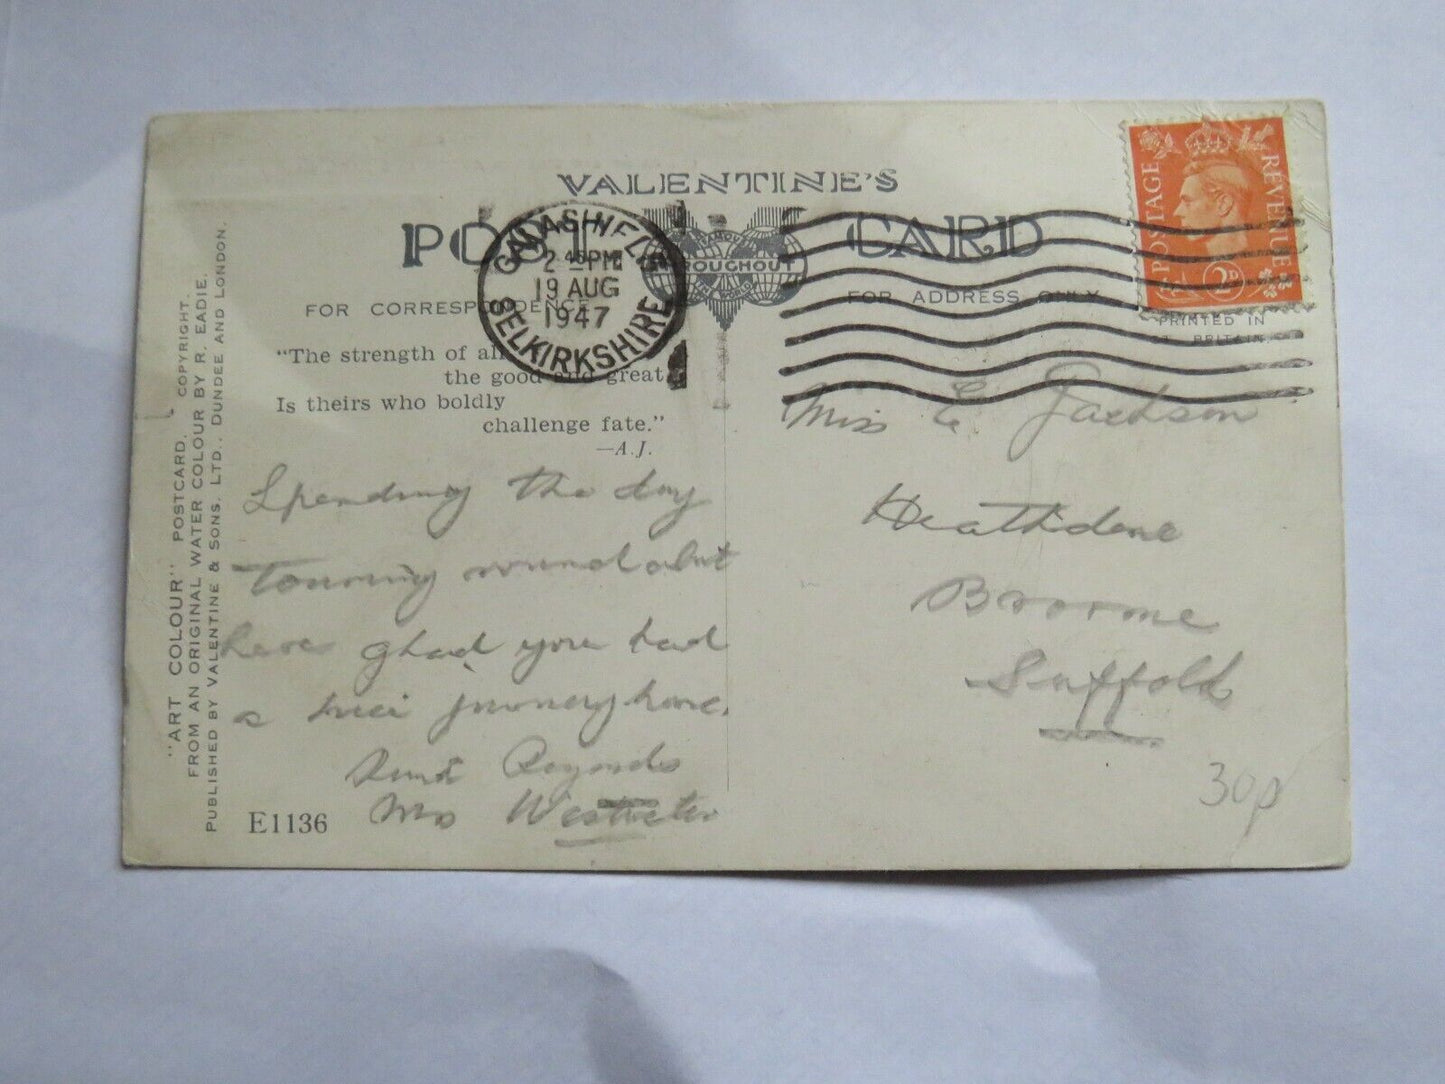 VALENTINE'S
POST CARD
FAMOUS
THROUGHOUT
THE WORLD
GALASHIELS
2 45 PM
19 AUG
1947
SELKIRKSHIRE
POSTAGE REVENUE
2D
FOR CORRESPONDENCE
FOR ADDRESS ONLY
PRINTED IN
GT. BRITAIN
"The strength of all
the good and great
Is theirs who boldly
challenge fate."
—A.J.
Spending the day
touring round about
here glad you had
a nice journey home.
Mrs
E1136
"ART COLOUR" POSTCARD. COPYRIGHT.
FROM AN ORIGINAL WATER COLOUR BY R. EADIE.
PUBLISHED BY VALENTINE & SONS. LTD., DUNDEE AND LONDON.
Miss E Jackson
Heathdene
Broome
Suffolk
30p